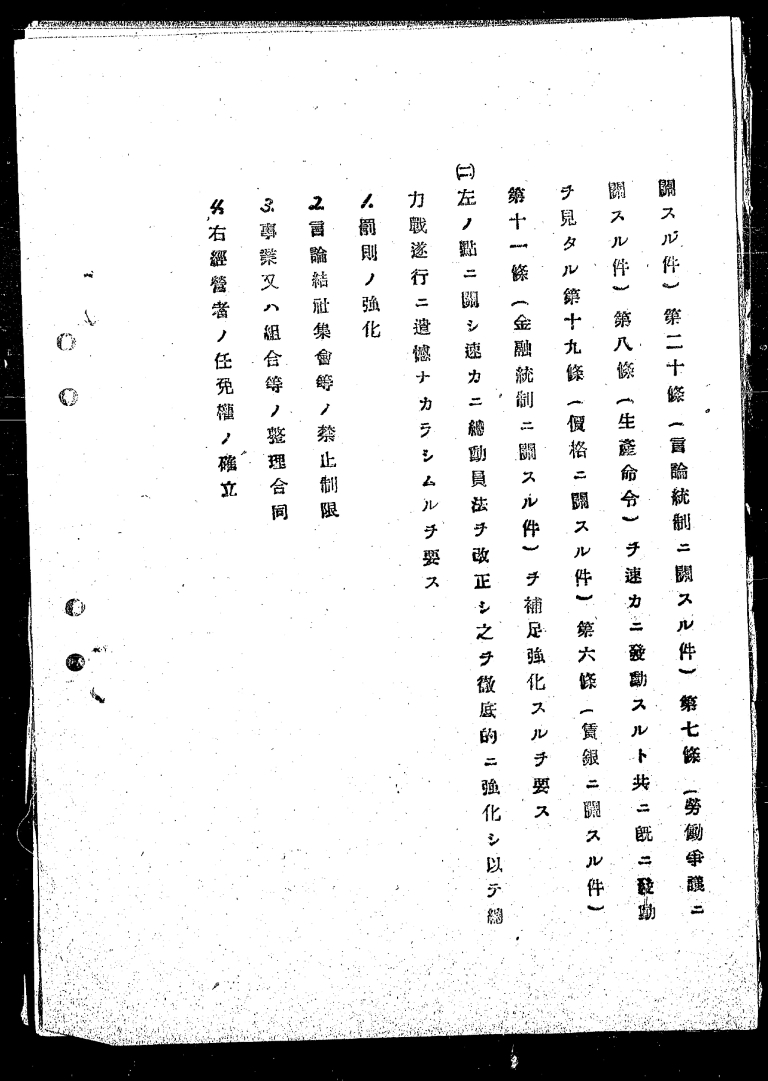 關スル件)第二十條(言論統制ニ關スル件)第七條(勞働爭議ニ
關スル件)第八條(生產命令)ヲ速カニ發動スルト共ニ既ニ發動
ヲ見タル第十九條(價格ニ關スル件)第六條(賃銀ニ關スル件)
第十一條(金融統制ニ關スル件)ヲ補足強化スルヲ要ス
(二)左ノ點ニ關シ速カニ總動員法ヲ改正シ之ヲ徹底的ニ強化シ以テ總
力戰遂行ニ遺憾ナカラシムルヲ要ス
1. 罰則ノ強化
2. 言論結社集會等ノ禁止制限
3. 事業又ハ組合等ノ整理合同
4. 右經營者ノ任免權ノ確立